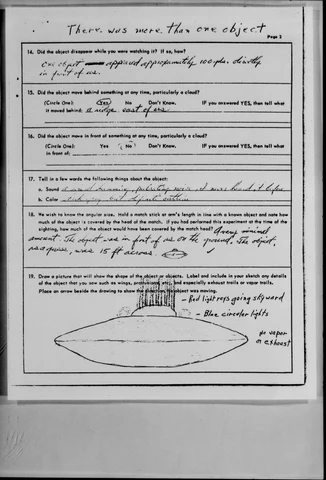 There was more than one object
Page 2
14. Did the object disappear while you were watching it? If so, how?
one object appeared approximately 100 yds. directly
in front of us.
15. Did the object move behind something at any time, particularly a cloud?
(Circle One): Yes No Don't Know. IF you answered YES, then tell what
it moved behind: a ridge east of us
16. Did the object move in front of something at any time, particularly a cloud?
(Circle One): Yes No Don't Know. IF you answered YES, then tell what
in front of:
17. Tell in a few words the following things about the object:
a. Sound
b. Color
18. We wish to know the angular size. Hold a match stick at arm's length in line with a known object and note how
much of the object is covered by the head of the match. If you had performed this experiment at the time of the
sighting, how much of the object would have been covered by the match head? A very minimal
amount. The object was in front of us on the ground. The object,
as a guess, was 15 ft across.
19. Draw a picture that will show the shape of the object or objects. Label and include in your sketch any details
of the object that you saw such as wings, protrusions, etc., and especially exhaust trails or vapor trails.
Place an arrow beside the drawing to show the direction the object was moving.
- Red light rays going skyward
- Blue circular lights
No vapor
or exhaust